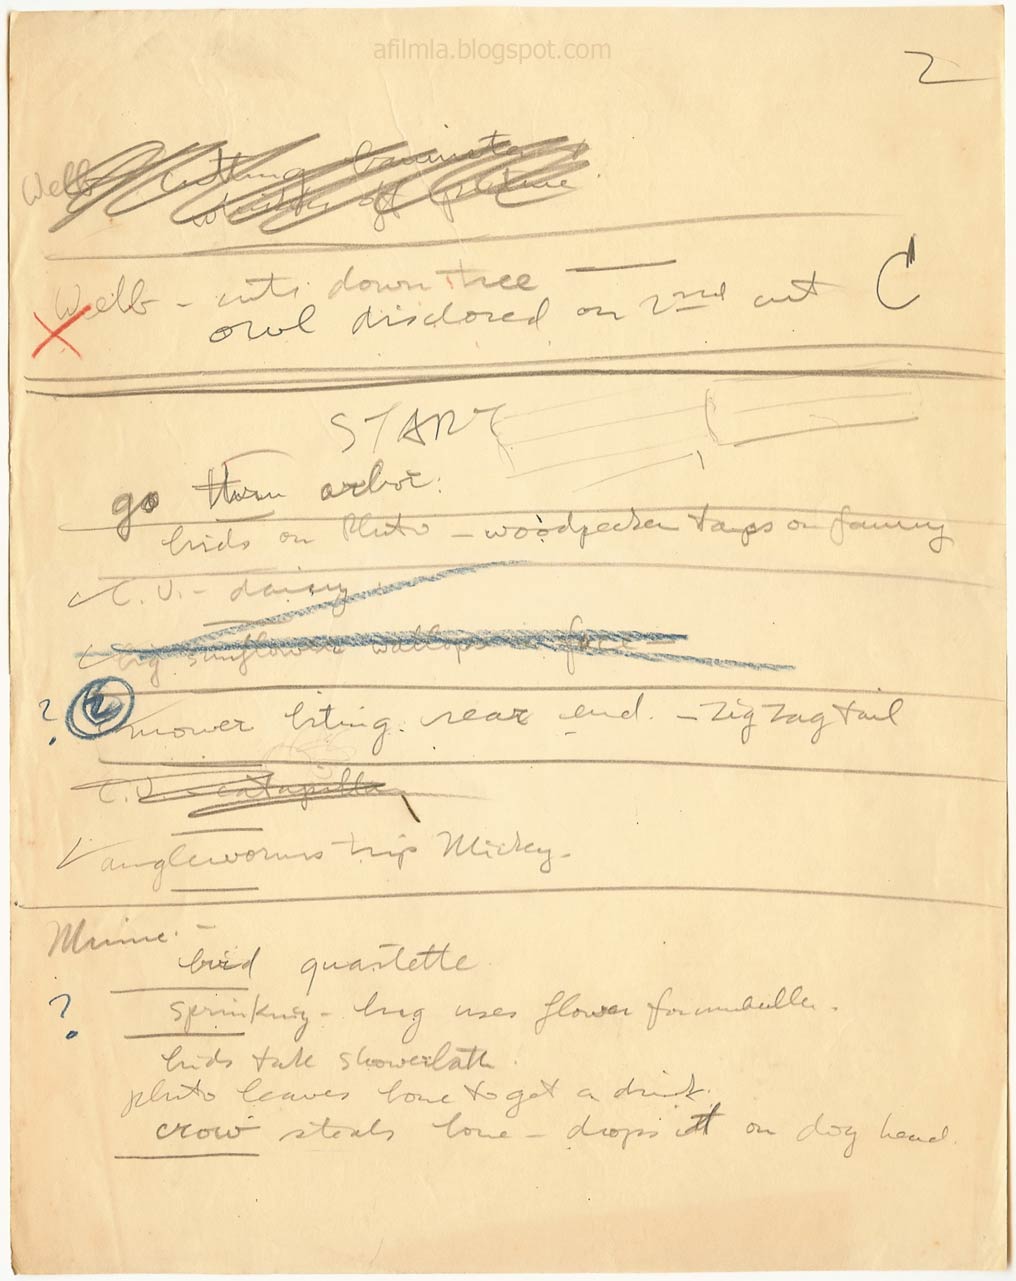 afilmla.blogspot.com
2
Webb cutting
whistles off picture.
Webb - cuts down tree
owl disclosed on 2nd cut
C
START
go thru arbor.
birds on Pluto - woodpecker taps on fanny
C.U. - daisy
big sunflower wallops in face
? 2 mower biting rear end. - zig zag tail
C.U. - catapilla
angleworms trip Mickey -
Minnie. -
bird quartette
? sprinkling - bug uses flower for umbrella.
birds take showerbath.
pluto leaves bone to get a drink.
crow steals bone - drops it on dog head.